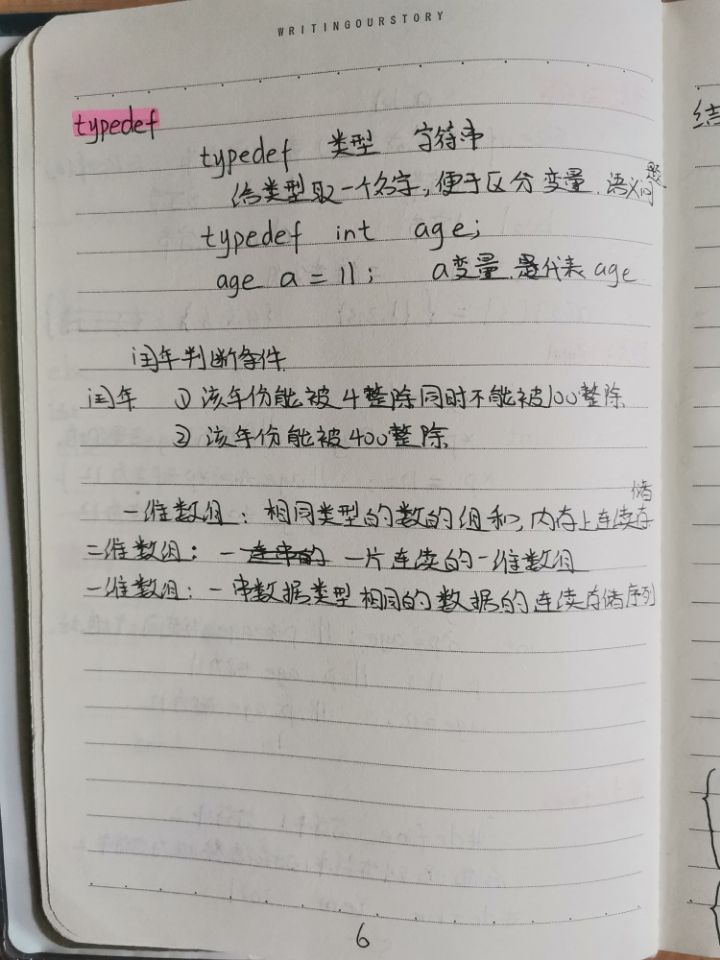 WRITINGOURSTORY
typedef
typedef 类型 字符串
给类型取一个名字,便于区分变量.语义问题.
typedef int age;
age a = 11; a变量是代表 age
闰年判断条件
闰年 ①该年份能被4整除同时不能被100整除
②该年份能被400整除
一维数组: 相同类型的数的组和,内存上连续存储
二维数组: 一连串的 一片连续的一维数组
一维数组: 一串数据类型相同的数据的连续存储序列
6
结